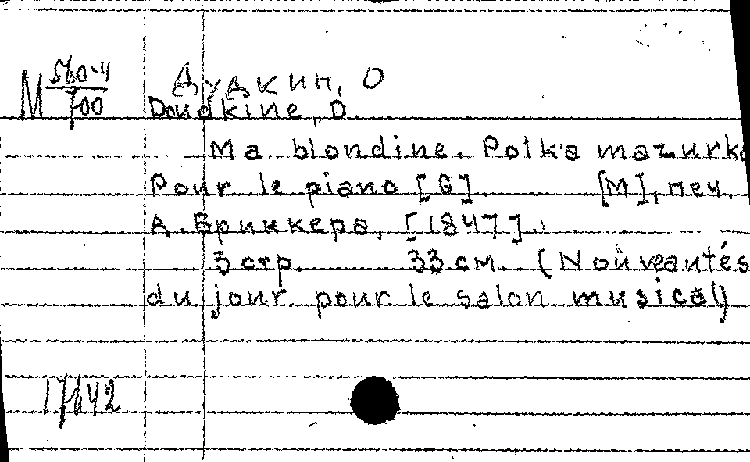 М 560-4/700
Дудкин, О
Doudkine, O.
Ma blondine. Polka mazurka
Pour le piano [G]. [М], печ.
А. Бриккера, [1847].
3 стр. 33 см. (Nouveautés
du jour pour le salon musical)
17642